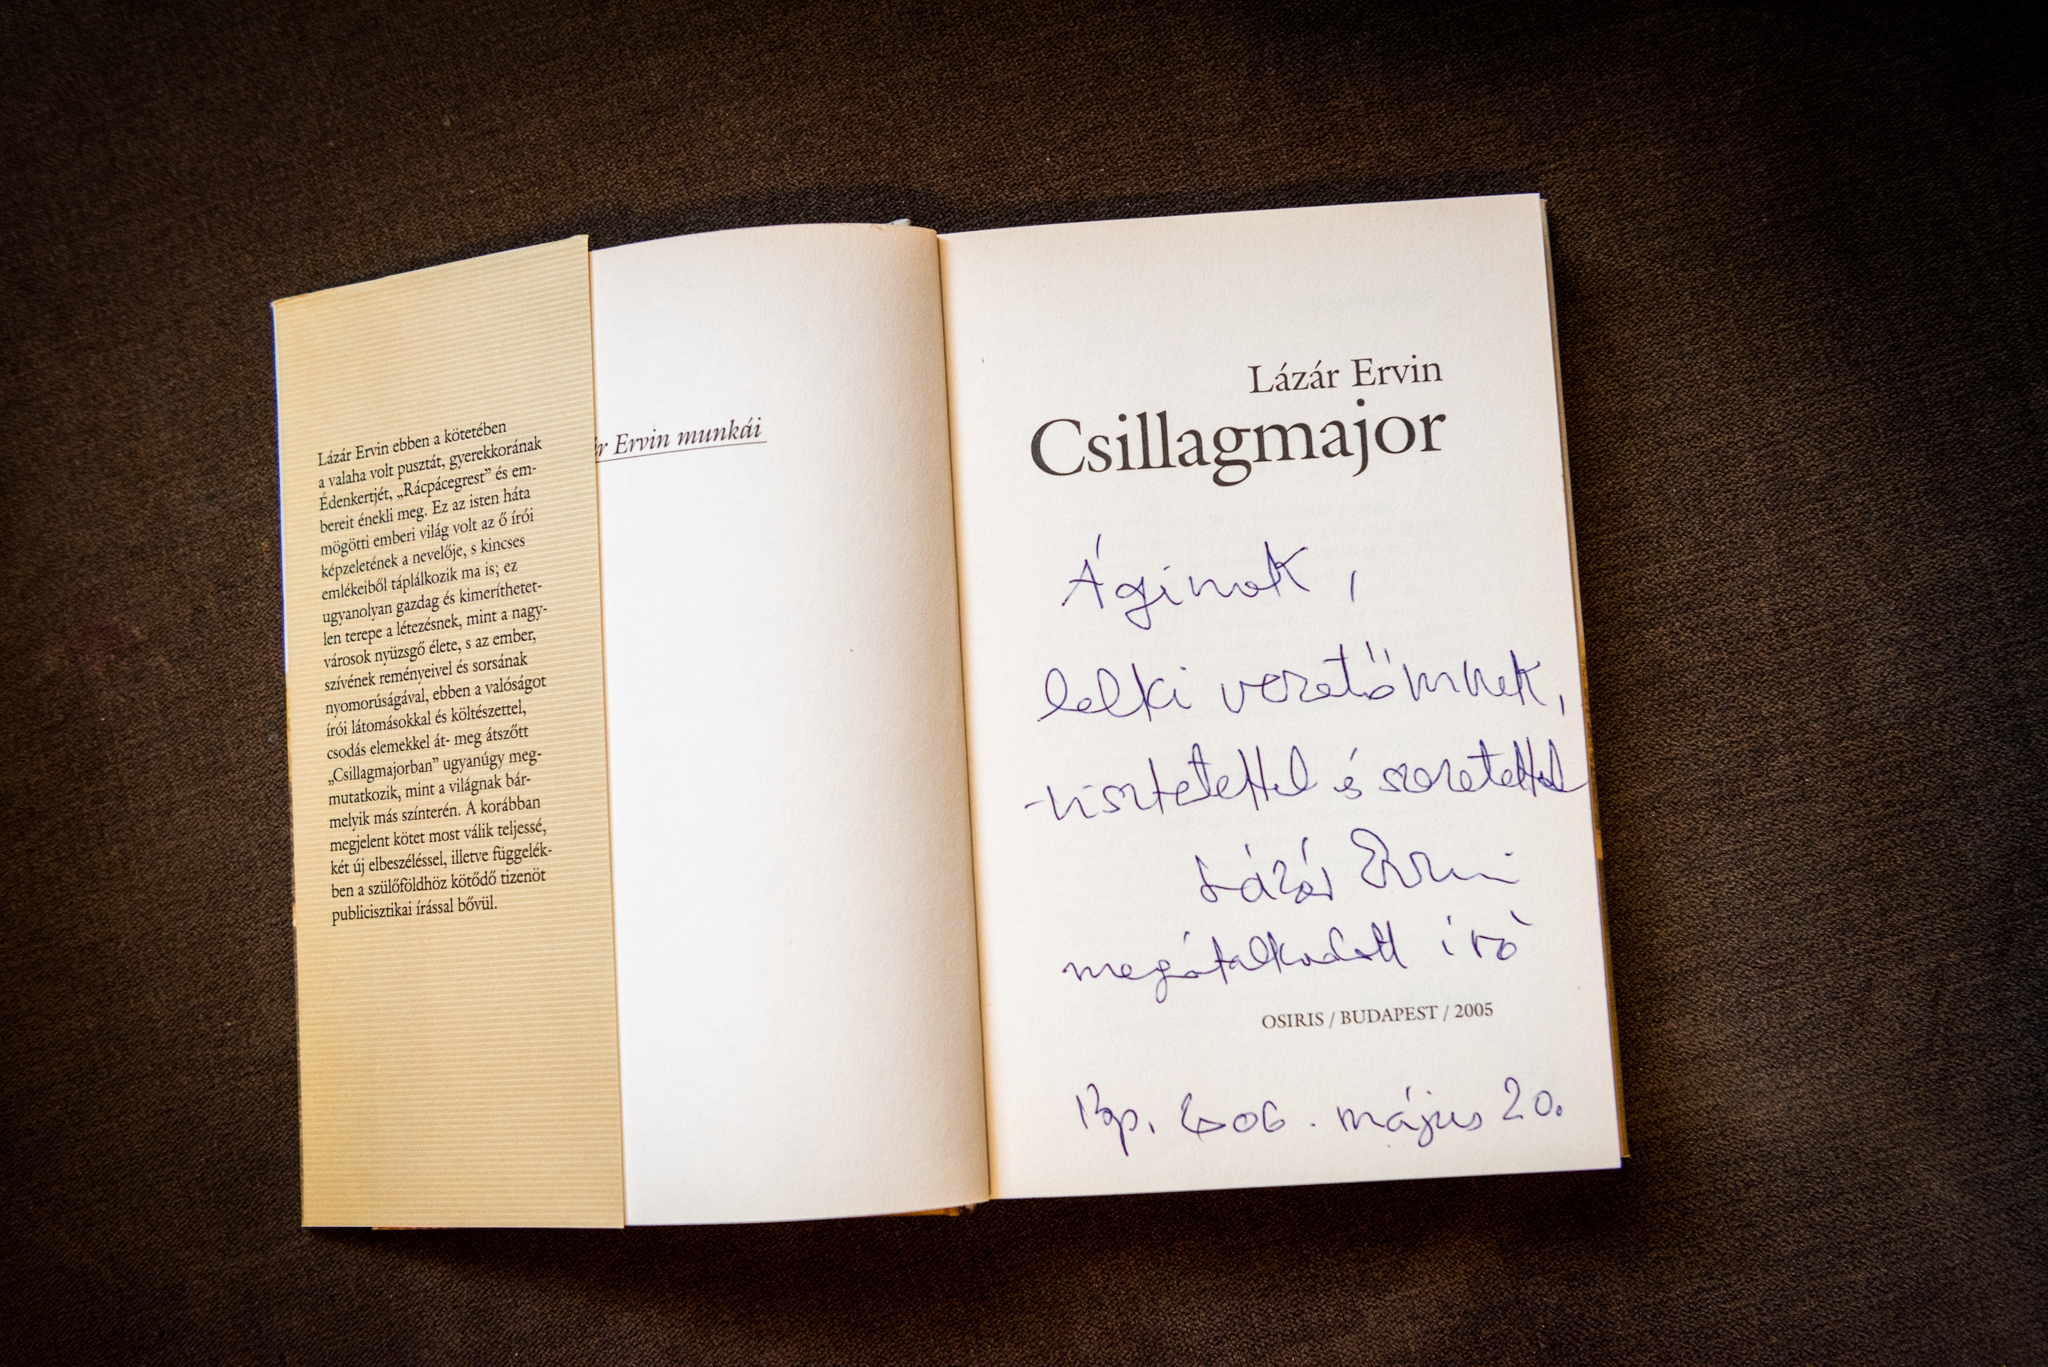 Lázár Ervin ebben a kötetében
a valaha volt pusztát, gyerekkorának
Édenkertjét, „Rácpácegrest” és em-
bereit énekli meg. Ez az isten háta
mögötti emberi világ volt az ő írói
képzeletének a nevelője, s kincses
emlékeiből táplálkozik ma is; ez
ugyanolyan gazdag és kimeríthetet-
len terepe a létezésnek, mint a nagy-
városok nyüzsgő élete, s az ember,
szívének reményeivel és sorsának
nyomorúságával, ebben a valóságot
írói látomásokkal és költészettel,
csodás elemekkel át- meg átszőtt
„Csillagmajorban” ugyanúgy meg-
mutatkozik, mint a világnak bár-
melyik más színterén. A korábban
megjelent kötet most válik teljessé,
két új elbeszéléssel, illetve függelék-
ben a szülőföldhöz kötődő tizenöt
publicisztikai írással bővül.
ár Ervin munkái
Lázár Ervin
Csillagmajor
Áginak,
lelki vezetőmnek,
tisztelettel és szeretettel
Lázár Ervin
megátalkodott író
OSIRIS / BUDAPEST / 2005
Bp. 2006. május 20.